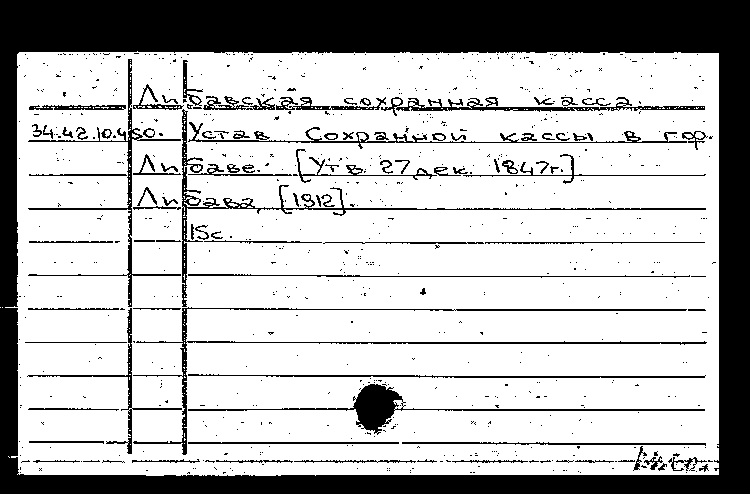 Либавская сохранная касса.
34.42.10.450. Устав Сохранной кассы в гор.
Либаве. [Утв. 27 дек. 1847г.]
Либава, [1912].
15с.